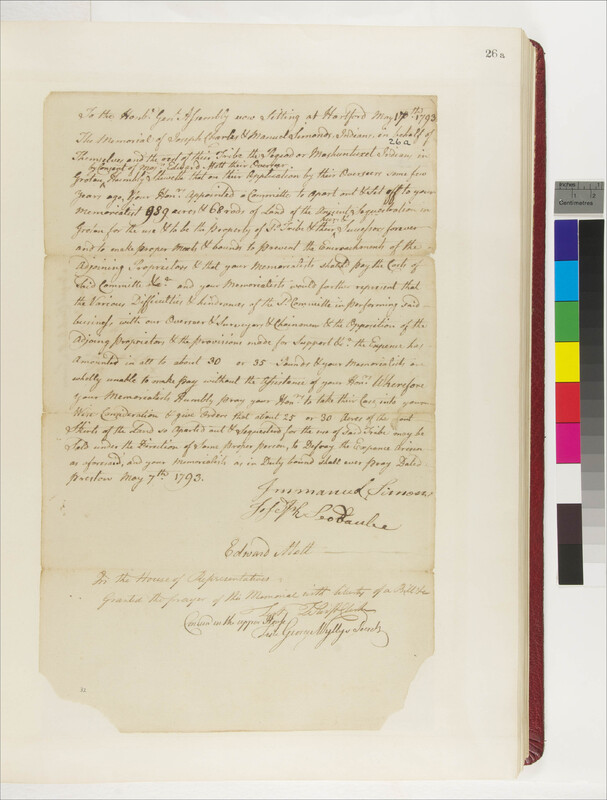 26a
To the Honbl. Genl. Assembly now Sitting at Hartford May 17th 1793
The Memorial of Joseph Charles & Manuel Simonds, Indians, in behalf of
26a
Themselves and the rest of their Tribe the Pequod or Mashuntuxet Indian in
Consent of Edward Mott their Overseer
Groton, Humbly Sheweth that on their Application by their Overseers some few
years ago, Your Honrs. Appointed a Committe to Apart out & Set off to your
Memorialist 989 acres & 68 rods of Land of the Sequestration in
Groton for the use & to be the Property of Sd. Tribe & their Successors forever
and to make proper & bounds to prevent the Encroachments of the
Adjoining Proprietors & that your Memorialists should pay the Costs of
Said Committee &c. and your Memorialists would further represent that
the Various Difficulties & hindrances of the Sd. Committe in Performing Said
business with our Overseer & Surveyor & Chainmen & the Opposition of the
Adjoing Proprietors & the provisions made for Support &c. the Expence has
Amounted in all to about 30 or 35 Pounds & your Memorialists are
wholly unable to make pay without the Assistance of your Honrs. Wherefore
your Memorialists Humbly pray your Honrs. to take this Case into your
Wise Consideration & give Orders that about 25 or 30 Acres of the out
Skirts of the Land so aparted out & Sequested for the use of Said Tribe may be
Sold under the Direction of Some Proper person, to Defray the Expence
as aforesaid, and your Memorialists as in Duty bound shall ever Pray Dated
Preston May 7th. 1793.
Immanuel Simon
Joseph
Edward Mott
In the House of Representatives
Granted the prayer of the Memorial with liberty of a Bill &c
Test
Concurd in the upper House
Test George Wyllys Secrety
Inches
1 2
Centimetres